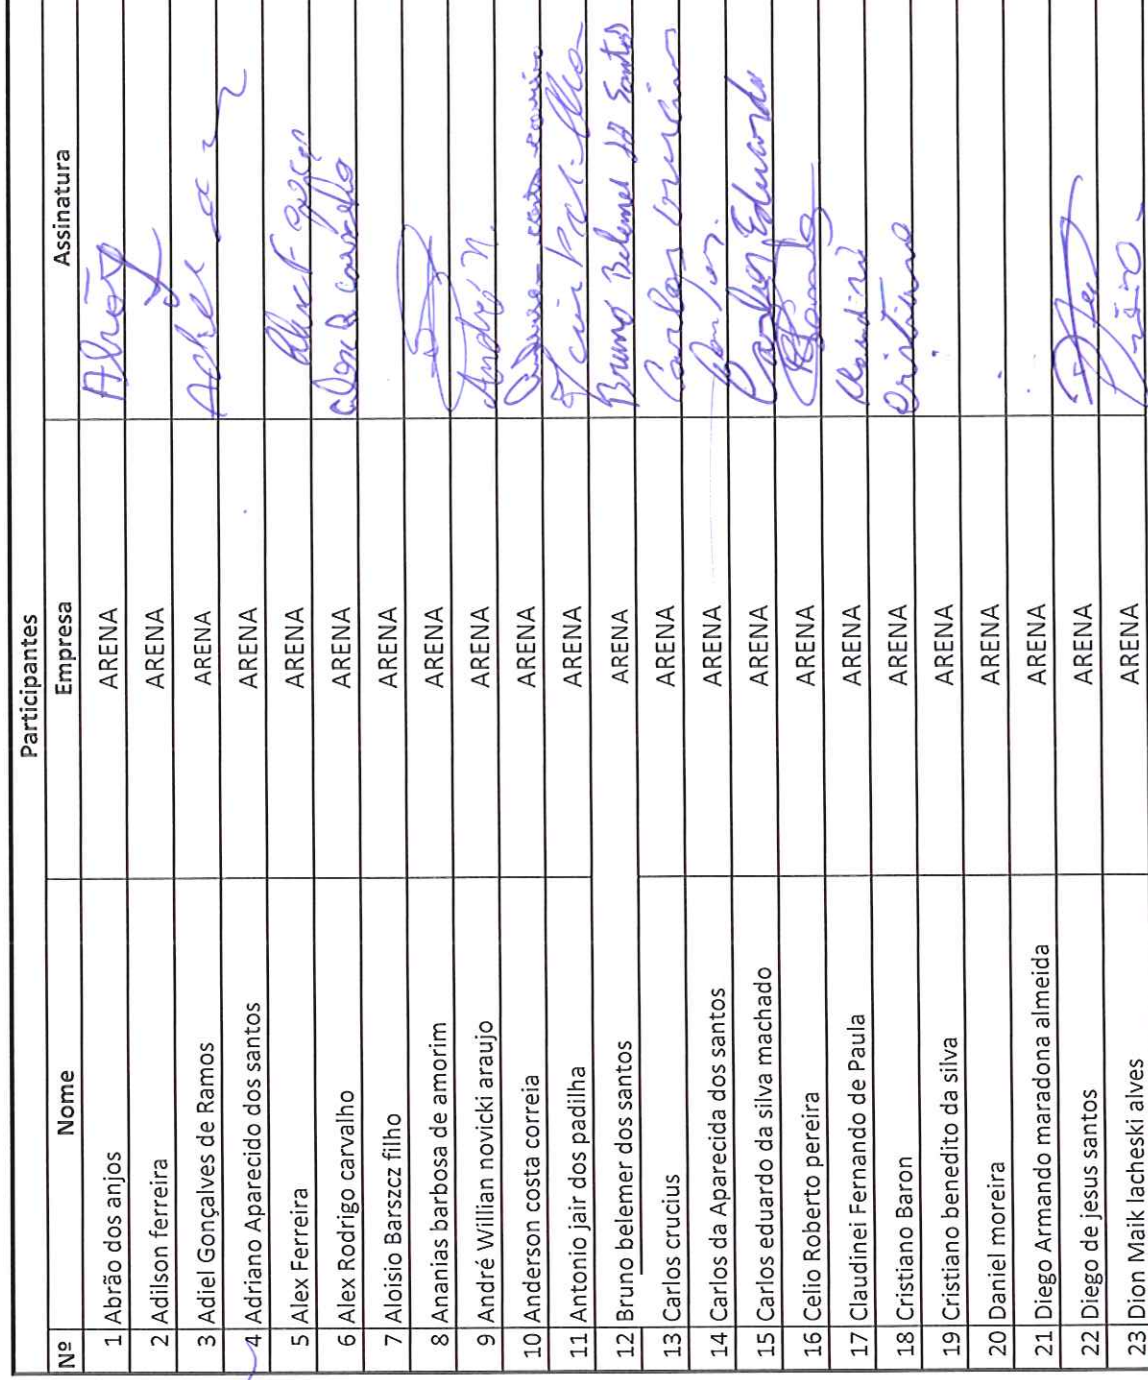 Participantes
Nº Nome Empresa Assinatura
1 Abrão dos anjos ARENA Abrão
2 Adilson ferreira ARENA
3 Adiel Gonçalves de Ramos ARENA
4 Adriano Aparecido dos santos ARENA
5 Alex Ferreira ARENA
6 Alex Rodrigo carvalho ARENA
7 Aloisio Barszcz filho ARENA
8 Ananias barbosa de amorim ARENA
9 André Willian novicki araujo ARENA André
10 Anderson costa correia ARENA
11 Antonio jair dos padilha ARENA
12 Bruno belemer dos santos ARENA Bruno Belemer dos Santos
13 Carlos crucius ARENA Carlos crucius
14 Carlos da Aparecida dos santos ARENA
15 Carlos eduardo da silva machado ARENA Carlos Eduardo
16 Celio Roberto pereira ARENA
17 Claudinei Fernando de Paula ARENA Claudinei
18 Cristiano Baron ARENA Cristiano
19 Cristiano benedito da silva ARENA
20 Daniel moreira ARENA
21 Diego Armando maradona almeida ARENA
22 Diego de jesus santos ARENA
23 Dion Maik lacheski alves ARENA